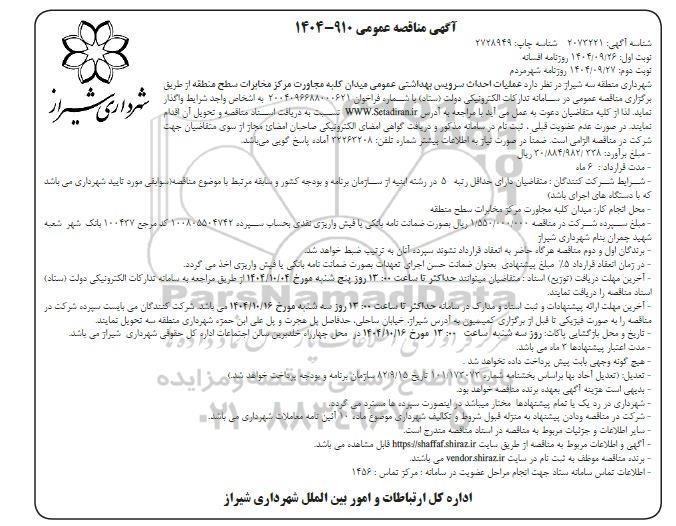 آگهی مناقصه عمومی ۹۱۰-۱۴۰۴
شهرداری شیراز
شناسه آگهی: ۲۰۷۳۲۲۱ شناسه چاپ: ۲۷۲۸۹۴۹
نوبت اول: ۱۴۰۴/۰۹/۲۶ روزنامه افسانه
نوبت دوم: ۱۴۰۴/۰۹/۲۷ روزنامه شهرمردم
شهرداری منطقه سه شیراز در نظر دارد عملیات احداث سرویس بهداشتی عمومی میدان کلبه مجاورت مرکز مخابرات سطح منطقه از طریق
برگزاری مناقصه عمومی در سامانه تدارکات الکترونیکی دولت (ستاد) با شماره فراخوان ۲۰۰۴۰۹۶۶۸۸۰۰۰۶۲۱ به اشخاص واجد شرایط واگذار
نماید. لذا از کلیه متقاضیان دعوت به عمل می آید با مراجعه به آدرس www.Setadiran.ir نسبت به دریافت اسناد مناقصه و تحویل آن اقدام
نمایند. در صورت عدم عضویت قبلی ، ثبت نام در سامانه مذکور و دریافت گواهی امضای الکترونیکی صاحبان امضائ مجاز از سوی متقاضیان جهت
شرکت در مناقصه الزامی است. ضمنا در صورت نیاز به اطلاعات بیشتر شماره تلفن: ۳۲۲۶۳۲۰۸ آماده پاسخ گویی می‌باشد.
- مبلغ برآورد: ۳۰/۸۸۴/۹۸۲/۳۳۸ ریال
- مدت قرارداد : ۶ ماه
- شرایط شرکت کنندگان : متقاضیان دارای حداقل رتبه ۵ در رشته ابنیه از سازمان برنامه و بودجه کشور و سابقه مرتبط با موضوع مناقصه(سوابقی مورد تایید شهرداری می باشد
که با دستگاه های اجرای باشد)
- محل انجام کار: میدان کلبه مجاورت مرکز مخابرات سطح منطقه
- مبلغ سپرده شرکت در مناقصه ۱/۵۵۰/۰۰۰/۰۰۰ ریال بصورت ضمانت نامه بانکی یا فیش واریزی نقدی بحساب سپرده ۱۰۰۸۰۵۵۰۴۷۴۲ کد مرجع ۱۰۰۴۳۷ بانک شهر شعبه
شهید چمران بنام شهرداری شیراز
- برندگان اول و دوم مناقصه هرگاه حاضر به انعقاد قرارداد نشوند سپرده آنان به ترتیب ضبط خواهد شد.
- در زمان انعقاد قرارداد ۵٪ مبلغ پیشنهادی بعنوان ضمانت حسن اجرای تعهدات بصورت ضمانت نامه بانکی یا فیش واریزی اخذ می گردد.
- آخرین مهلت دریافت (توزیع) اسناد : متقاضیان میتوانند حداکثر تا ساعت ۱۳:۰۰ روز پنج شنبه مورخ ۱۴۰۴/۱۰/۰۴ از طریق مراجعه به سامانه تدارکات الکترونیکی دولت (ستاد)
اسناد مناقصه را دریافت نمایند.
- آخرین مهلت ارائه پیشنهادات و ثبت اسناد و مدارک در سامانه حداکثر تا ساعت ۱۳:۰۰ روز سه شنبه مورخ ۱۴۰۴/۱۰/۱۶ می باشد. شرکت کنندگان می بایست سپرده شرکت در
مناقصه را به صورت فیزیکی تا قبل از برگزاری کمیسیون به آدرس شیراز، خیابان ساحلی، حدفاصل پل هجرت و پل علی ابن حمزه شهرداری منطقه سه تحویل نمایند.
- تاریخ و محل بازگشایی پاکات: روز سه شنبه ساعت ۱۳:۰۰ مورخ ۱۴۰۴/۱۰/۱۶ در محل چهارراه خلدبرین سالن اجتماعات اداره کل حقوقی شهرداری شیراز می باشد.
- مدت اعتبار پیشنهادها ۳ ماه می باشد.
- هیچ گونه وجهی بابت پیش پرداخت داده نخواهد شد .
- تعدیل: (تعدیل آحاد بها براساس بخشنامه شماره ۱۰۱/۱۷۳۰۷۳ تاریخ ۸۲/۹/۱۵ سازمان برنامه و بودجه پرداخت خواهد شد.)
- بدیهی است هزینه آگهی بعهده برنده مناقصه خواهد بود.
- شهرداری در رد یک یا تمام پیشنهادها مختار میباشد در اینصورت سپرده ها مسترد می گردد.
- شرکت در مناقصه ودادن پیشنهاد به منزله قبول شروط و تکالیف شهرداری موضوع ماده ۱۰ آئین نامه معاملات شهرداری می باشد.
- سایر اطلاعات و جزئیات مربوط به مناقصه در اسناد مناقصه مندرج است.
- آگهی و اطلاعات مربوط به مناقصه از طریق سایت https://shaffaf.shiraz.ir قابل مشاهده می باشد.
- برنده مناقصه موظف به ثبت نام در سایت vendor.shiraz.ir می باشند.
- اطلاعات تماس سامانه ستاد جهت انجام مراحل عضویت در سامانه : مرکز تماس : ۱۴۵۶
اداره کل ارتباطات و امور بین الملل شهرداری شیراز